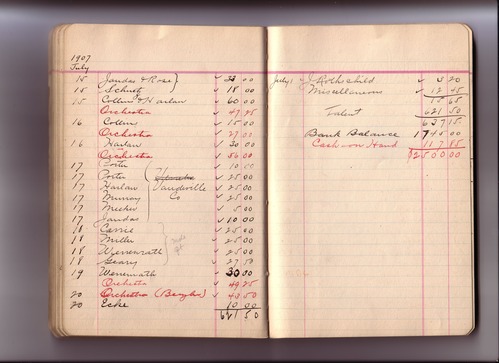 1907
July
15 Jaudas & Rose } 33 00
15 Schutz 18 00
15 Collins & Harlan 60 00
Orchestra 47 25
16 Collins 15 00
Orchestra 27 01
16 Harlan 30 00
Orchestra 56 00
17 Porter 10 00
17 Porter 25 00
17 Harlan Vaudeville 25 00
17 Murray Co 25 00
17 Meeker 5 00
17 Jaudas 10 00
18 Carrie 25 00
18 Miller 25 00
18 Werrenrath 25 00
18 Geary 27 50
19 Werrenrath 30 00
Orchestra 49 25
20 Orchestra 43 50
20 Ecke 10 00
621 50
July 1 J Rothschild 3 20
Miscellaneous 12 45
15 65
Talent 621 50
637 15
Bank Balance 1745 00
Cash on Hand 117 85
2500 00